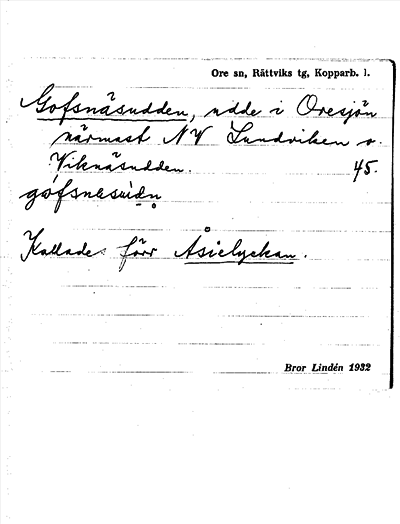 Ore sn, Rättviks tg, Kopparb. l.
Gofsnäsudden, udde i Oresjön
närmast NV Sundviken o.
Viknäsudden. 45.
Kallades förr Åsielyckan.
Bror Lindén 1932